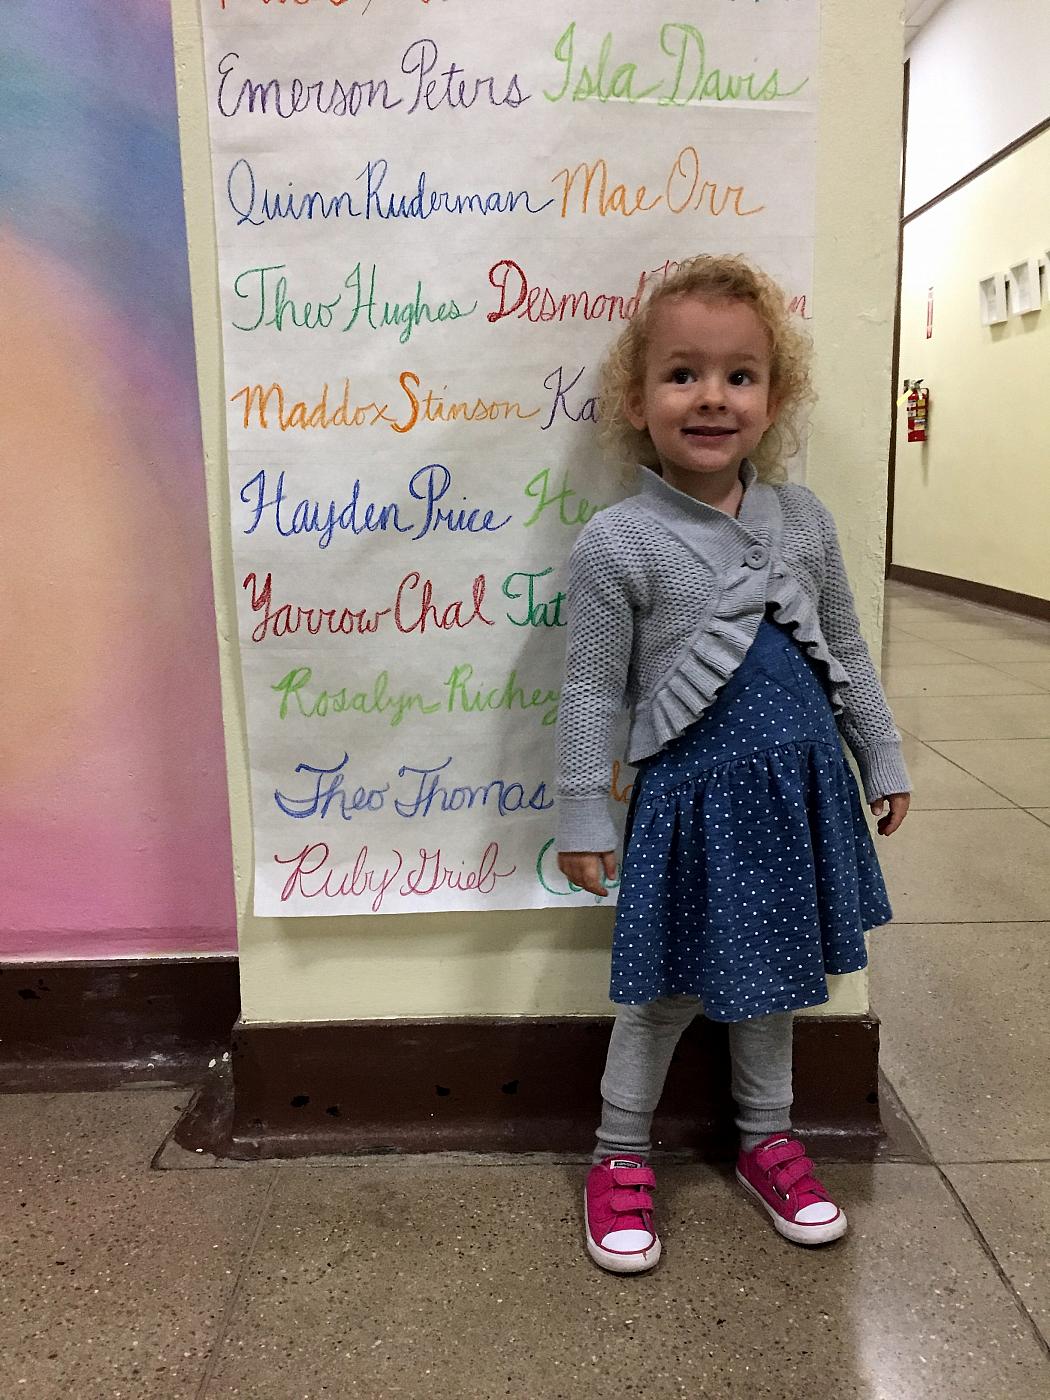 Emerson Peters Isla Davis
Quinn Ruderman Mae Orr
Theo Hughes Desmond
Maddox Stinson Ka
Hayden Price He
Yarrow Chal Tat
Rosalyn Richey
Theo Thomas
Ruby Grieb